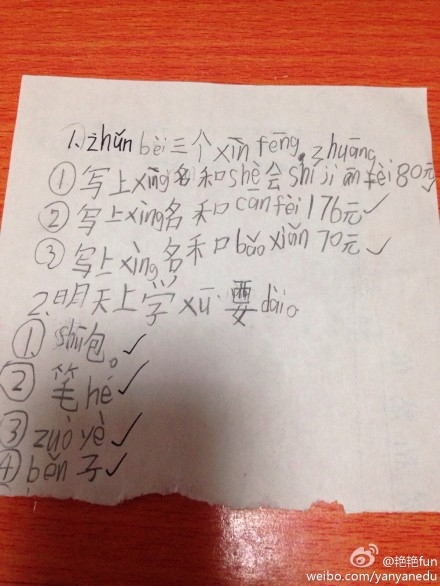 1、zhǔn bèi三个xìn fēng,zhuāng
①写上xìng名和shè会shí jiàn fèi 80元✓
②写上xìng名和cān fèi 176元✓
③写上xìng名和bǎo xiǎn 70元✓
2.明天上学xū要dài。
①shū包。✓
②笔hé✓
③zuò yè✓
④běn子✓
@艳艳fun
weibo.com/yanyanedu